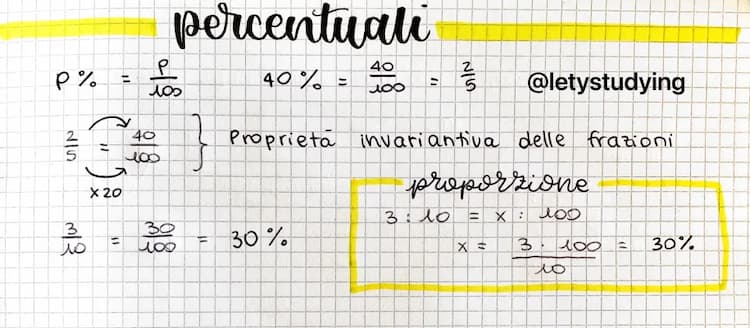 percentuali
P% = P/100 40% = 40/100 = 2/5 @letystudying
2/5 = 40/100 } Proprietà invariantiva delle frazioni
x20
proporzione
3 : 10 = x : 100
3/10 = 30/100 = 30% x = 3 · 100/10 = 30%